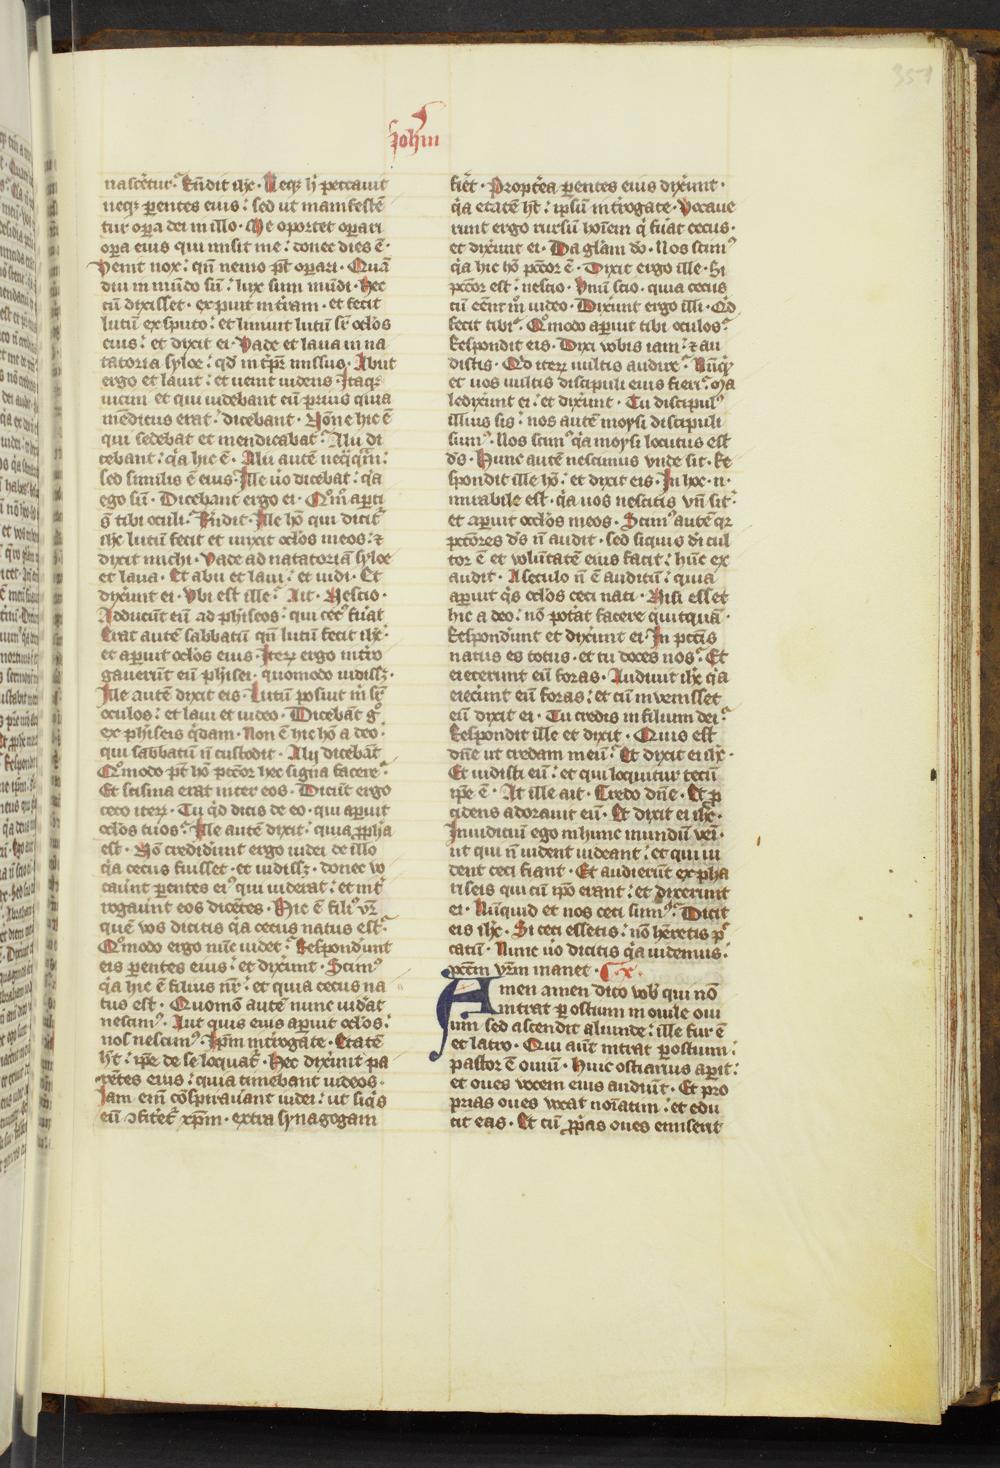 351
Johan
nascet̄ur. Rn̄dit ihc̄. Neq; h̓ peccauit
neq; ꝑentes eius: sed ut manifestē
tur oꝑa dei in illo. Me oportet oꝑari
oꝑa eius qui misit me: donec dies ē.
Venit nox: qn̄ nemo pt̄ oꝑari. Quā
diu in mūdo sū: lux sum mūdi. Hec
cū dixisset. expuit in tr̄am. et fecit
lutū ex sputo: et liniuit lutū sr̄ oc̄los
eius: et dixit ei. Vade et laua in na
tatoria syloe: qd̓ int̄ꝑr̄ missus. Abiit
ergo et lauit: et uenit uidens. Itaqꝫ
uicini et qui uidebant eū prius quia
mēdicus erat: dicebant. Nōne hic ē
qui sedebat et mendicabat. Alii di
cebant: qa hic ē. Alii autē neq̓q̓m:
sed similis ē eius. Ille u̓o dicebat: qa
ego sū. Dicebant ergo ei. Qōm̄ aꝑti
s̄ tibi oculi. Rn̄dit. Ille hō qui dicit̄
ihc̄ lutū fecit et unxit oc̄los meos: ⁊
dixit michi. Vade ad natatoriā syloe
et laua. Et abii et laui: et uidi. Et
dixer̄unt ei. Vbi est ille. Ait. Nescio.
Adducūt eū ad phiseos: qui cec̓ fuāt
Erat autē sabbatū qn̄ lutū fecit ihc̄.
et aꝑuit oc̄los eius. Iterꝝ ergo int̓ro
gauerūt eū phisei. quomodo uidissꝫ.
Ille autē dixit eis. Lutū posuit m̓ sr̄
oculos: et laui et uideo. Dicebāt gͦ
ex phiseis q̓dam. Non ē hic hō a deo.
qui sabbatū n̄ custodit. Alij dicebāt
Qͦmodo pt̄ hō pctōr hec signa facere.
Et scisma erat inter eos. Dicūt ergo
ceco iterꝝ. Tu qd̓ dicis de eo. qui aꝑuit
oc̄los tuos. Ille autē dixit: quia ꝓpha
est. Nō credider̄unt ergo iudei de illo
qa cecus fuisset. et uidissꝫ. donec uo
cauer̄nt ꝑentes ei̓ qui uiderat: et int̓
rogauer̄nt eos dicētes. Hic ē fili̓ vr̄
quē vos dicitis qa cecus natus est.
Qͦmodo ergo nūc uidet. Respondunt
eis ꝑentes eius: et dixer̄unt. Scim̓
qa hic ē filius nr̄: et quia cecus na
tus est. Quomō autē nunc uideat
nescim̓. Aut quis eius aꝑuit oc̄los:
nos nescim̓. Ip̄m int̓rogate. Etatē
ht̄: ip̄e de se loquat̄. Hec dixer̄unt pa
rētes eius: quia timebant iudeos.
Iam enī cōspirauer̄ant iudei: ut siq̓s
eū ꝯfitet̄ xp̄m. extra synagogam
fiēt. Propt̄ea ꝑentes eius dixer̄unt.
qa etatē ht̄: ipsū int̓rogate. Vocaue
runt ergo rursū hoīem q̓ fuāt cecus.
et dixer̄unt ei. Da glām dō. Nos scim̓
qa hic hō pctōr ē. Dixit ergo ille. Si
pctōr est: nescio. Vnū scio. quia cecus
cū eēm m̄ uideo. Dixer̄unt ergo illi. Qd̓
fecit tibi. Qͦmodo aꝑuit tibi oculos.
Respondit eis. Dixi vobis iam: ⁊ au
distis. Qd̓ iterꝝ uultis audire. Nūq̓d
et uos uultis discipuli eius fieri. Ma
ledixer̄unt ei: et dixer̄unt. Tu discipul̓
illius sis: nos autē moysi discipuli
sum̓. Nos scim̓ qa moysi locutus est
ds̄. Hunc autē nescimus vnde sit. Re
spondit ille hō: et dixit eis. In hoc. n.
mirabile est. qa uos nescitis vn̄ sit.
et aꝑuit oc̄los meos. Scim̓ autē qꝛ
pctōres ds̄ n̄ audit. sed siquis dī cul
tor ē et volūtatē eius facit: hūc ex
audit. A seculo n̄ ē auditū: quia
aꝑuit q̓s oc̄los ceci nati. Nisi esset
hic a deo: nō potāt facere quitquā.
Responder̄unt et dixer̄unt ei. In pctīs
natus es totus. et tu doces nos. Et
eiecerunt eū foras. Audiuit ihc̄ qa
eiecer̄unt eū foras: et cū inuenisset
eū dixit ei. Tu credis in filium dei.
Respondit ille et dixit. Quis est
dn̄e ut credam in eū. Et dixit ei ihc̄.
Et uidisti eū: et qui loquitur tecū
ip̄e ē. At ille ait. Credo dn̄e. Et ꝓ
cidens adorauit eū. Et dixit ei ihc̄.
In iudiciū ego in hunc mundū veī.
ut qui n̄ uident uideant: et qui ui
dent ceci fiant. Et audierūt ex pha
riseis qui cū ip̄o erant: et dixerunt
ei. Nūquid et nos ceci sum̓. Dicit
eis ihc̄. Si ceci essetis: nō h̄eretis p̓
catū. Nunc u̓o dicitis qa uidemus.
pctm̄ vr̄m manet. C. x.
Amen amen dico vob̓ qui nō
intrat ꝑ ostium in ouile oui
um sed ascendit aliunde: ille fur ē
et latro. Qui aūt intrat ꝑ ostium:
pastor ē ouiū. Huic ostiarius aꝑit:
et oues vocem eius audiūt. Et pro
prias oues vocat noīatim: et edu
cit eas. Et cū ꝓpas oues emiserit